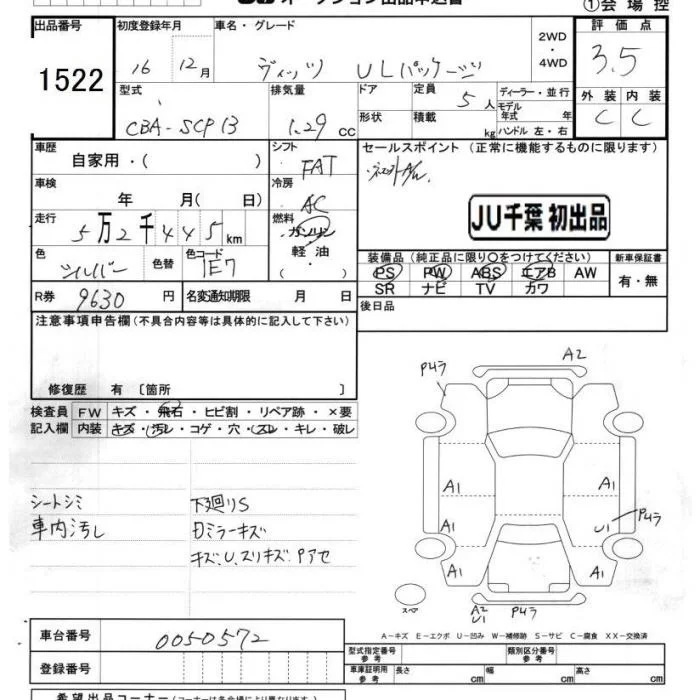 ①会場控
出品番号 初度登録年月 車名・グレード 評価点
1522
16 12月 ヴィッツ ULパッケージ
2WD・4WD
3.5
型式 排気量 ドア 定員 5人 ディーラー・並行
外装 内装
CBA-SCP13 1.29 cc
形状 積載 kg
モデル年式 年
ハンドル 左・右
C C
車歴 シフト セールスポイント(正常に機能するものに限ります)
自家用・( ) FAT
車検 冷房
年 月( 日) AC
JU千葉 初出品
走行 燃料
5万2千445km ガソリン
軽油
・
( )
色 色替 色コード
シルバー 1E7
装備品(純正品に限り○をつけてください) 新車保証書
PS PW ABS エアB AW 有・無
SR ナビ TV カワ
R券 9630円 名変通知期限 月 日
後日品
注意事項申告欄(不具合内容等は具体的に記入して下さい)
修復歴 有〔箇所 〕
検査員 FW キズ・飛石・ヒビ割・リペア跡・×要
記入欄 内装 キズ・汚レ・コゲ・穴・スレ・キレ・破レ
A2
Pムラ
シートシミ 下廻りS
車内汚レ 日ミラーキズ
キズ、U、スリキズ、Pアセ
A1 A1
A1 U1 Pムラ
A1 A1
スペア
A2 Pムラ
U1
A-キズ E-エクボ U-凹み W-補修跡 S-サビ C-腐食 XX-交換済
車台番号 0050572
登録番号
型式指定番号 参考 類別区分番号 参考
車庫証明用 参考 長さ cm 幅 cm 高さ cm
希望出品コーナー